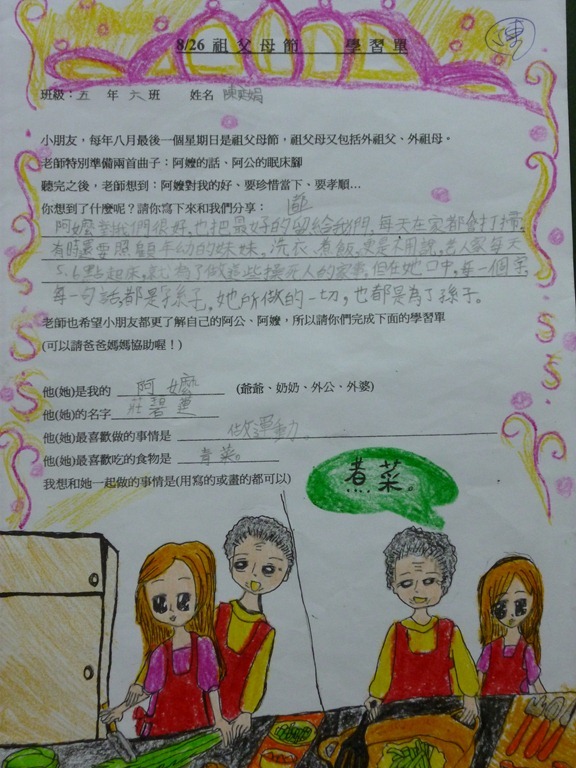 8/26 祖父母節 學習單
陳
班級:五 年 六 班 姓名 陳奕娟
小朋友,每年八月最後一個星期日是祖父母節,祖父母又包括外祖父、外祖母。
老師特別準備兩首曲子:阿嬤的話、阿公的眠床腳
聽完之後,老師想到:阿嬤對我的好、要珍惜當下、要孝順…
你想到了什麼呢?請你寫下來和我們分享:
阿嬤對我們很好,也把最好的留給我們,每天在家都會打掃,
有時還要照顧年幼的妹妹。洗衣、煮飯,更是不用說,老人家每天
5、6點起床,就為了做這些操死人的家事,但在她口中,每一個字,
每一句話,都是孫子,她所做的一切,也都是為了孫子。
老師也希望小朋友都更了解自己的阿公、阿嬤,所以請你們完成下面的學習單
(可以請爸爸媽媽協助喔!)
他(她)是我的 阿嬤 (爺爺、奶奶、外公、外婆)
他(她)的名字 莊碧蓮
他(她)最喜歡做的事情是 做運動。
他(她)最喜歡吃的食物是 青菜。
我想和她一起做的事情是(用寫的或畫的都可以)
煮菜。